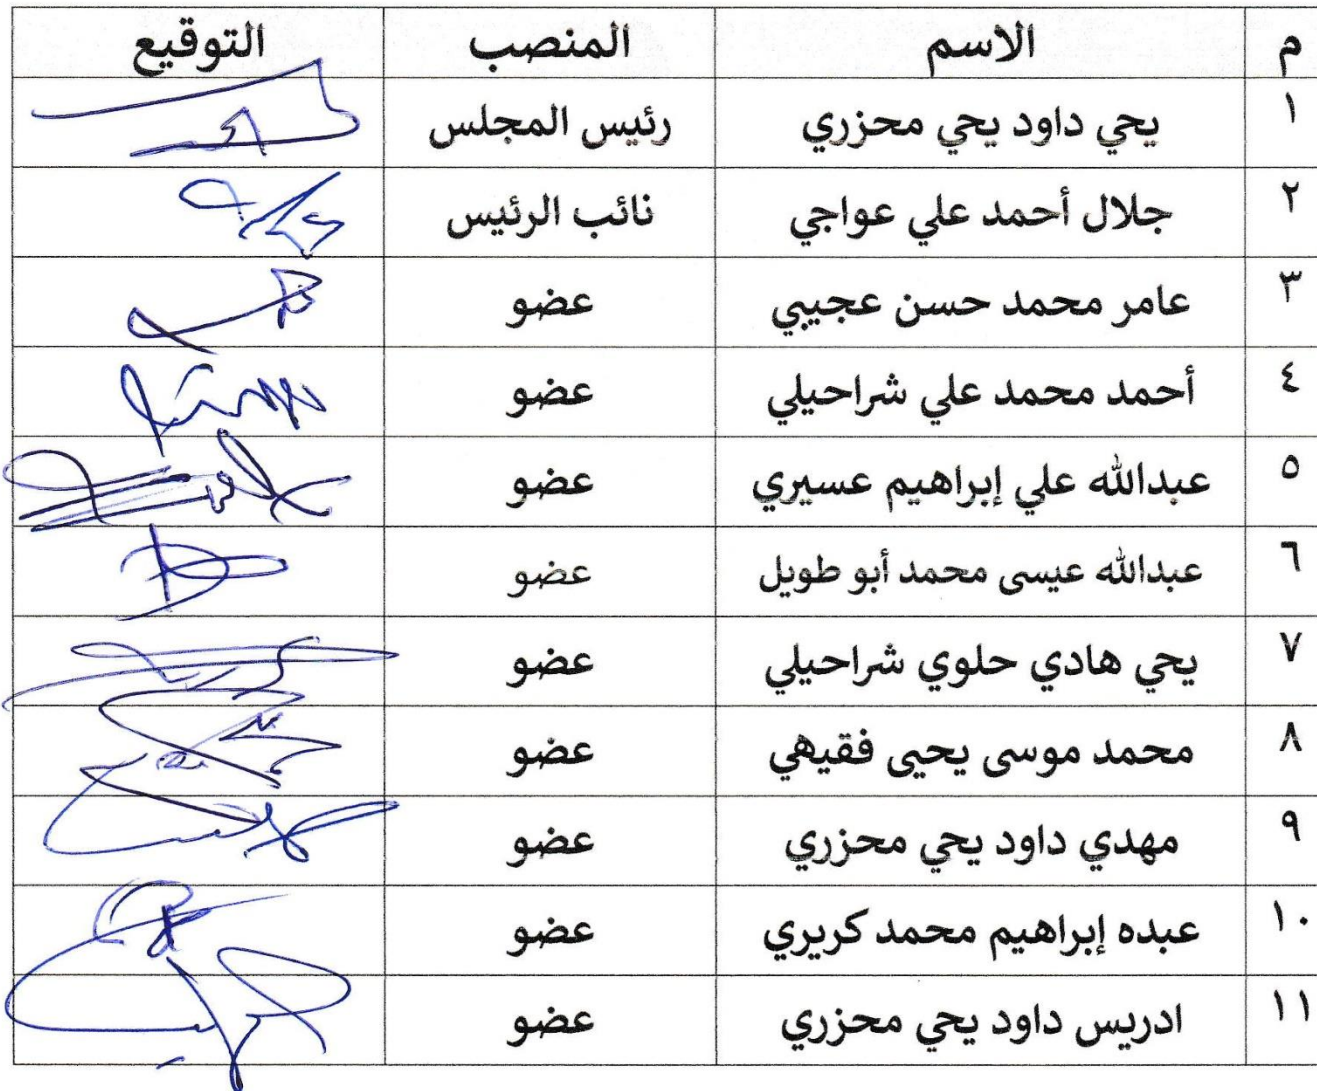 م الاسم المنصب التوقيع
١ يحي داود يحي محزري رئيس المجلس
٢ جلال أحمد علي عواجي نائب الرئيس
٣ عامر محمد حسن عجيبي عضو
٤ أحمد محمد علي شراحيلي عضو
٥ عبدالله علي إبراهيم عسيري عضو
٦ عبدالله عيسى محمد أبو طويل عضو
٧ يحي هادي حلوي شراحيلي عضو
٨ محمد موسى يحيى فقيهي عضو
٩ مهدي داود يحي محزري عضو
١٠ عبده إبراهيم محمد كريري عضو
١١ ادريس داود يحي محزري عضو